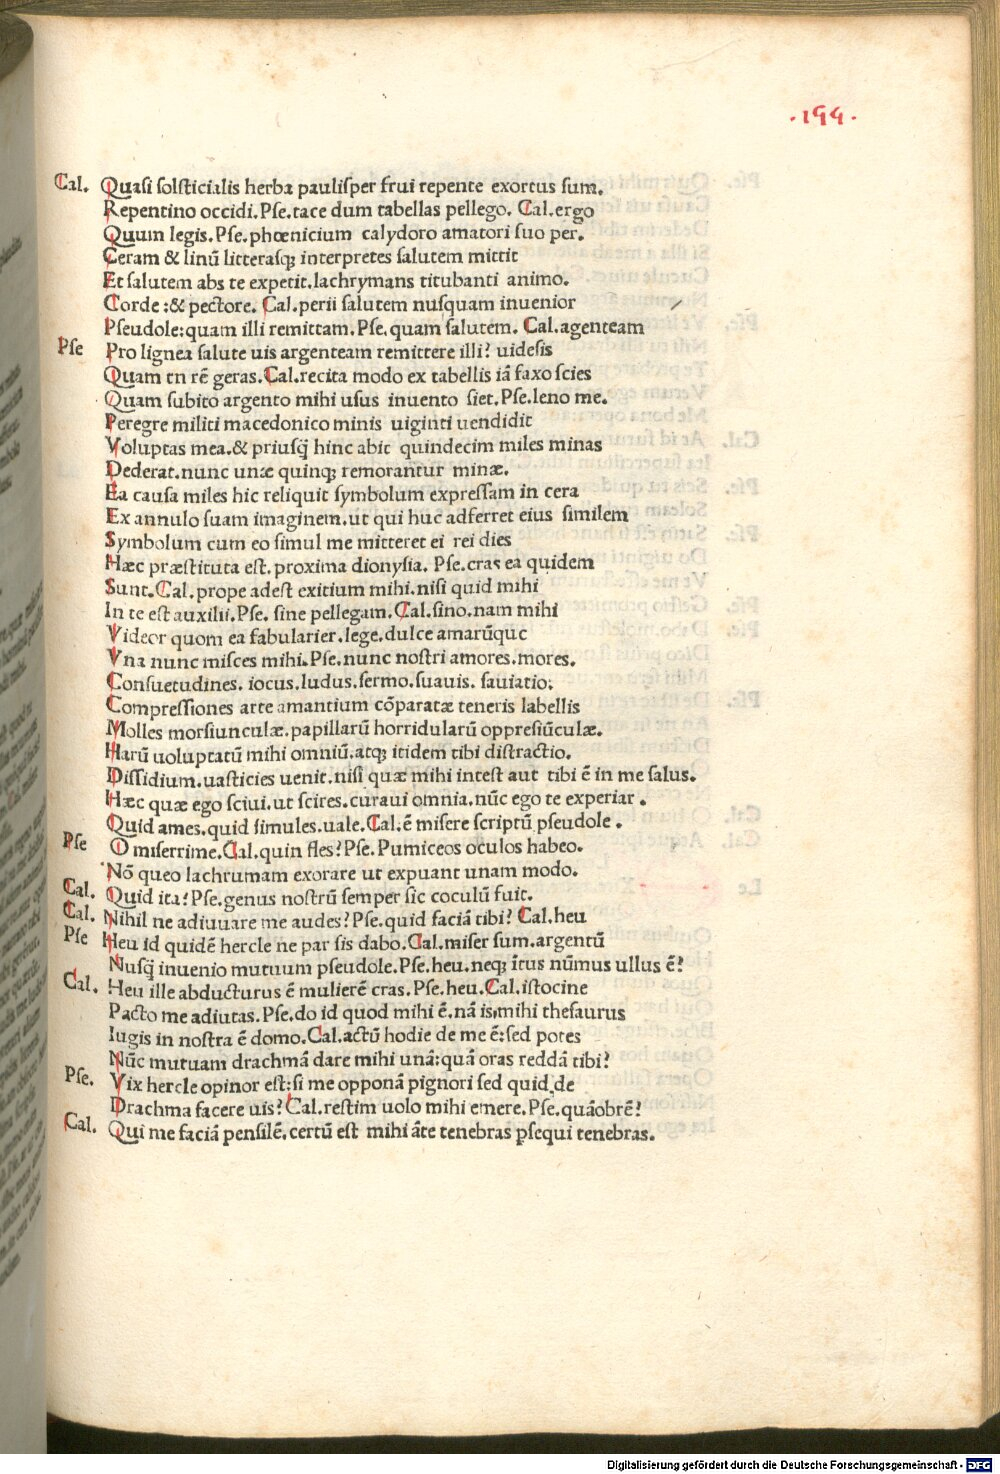 ·194·
Cal. Quasi solsticialis herba paulisper frui repente exortus sum.
Repentino occidi.Pse.tace dum tabellas pellego. Cal.ergo
Quum legis.Pse.phœnicium calydoro amatori suo per.
Ceram & linū litterasqꝫ interpretes salutem mittit
Et salutem abs te expetit.lachrymans titubanti animo.
Corde :& pectore. Cal.perii salutem nusquam inuenior
Pseudole:quam illi remittam.Pse.quam salutem. Cal.agenteam
Pse Pro lignea salute uis argenteam remittere illi? uidesis
Quam tn rē geras.Cal.recita modo ex tabellis iā faxo scies
Quam subito argento mihi usus inuento siet.Pse.leno me.
Peregre militi macedonico minis uiginti uendidit
Voluptas mea.& priusq̄ hinc abit quindecim miles minas
Dederat.nunc unæ quinqꝫ remorantur minæ.
Ea causa miles hic reliquit symbolum expressam in cera
Ex annulo suam imaginem.ut qui huc adferret eius similem
Symbolum cum eo simul me mitteret ei rei dies
Hæc præstituta est.proxima dionysia. Pse.cras ea quidem
Sunt.Cal.prope adest exitium mihi.nisi quid mihi
In te est auxilii.Pse. sine pellegam.Cal.sino.nam mihi
Videor quom ea fabularier.lege.dulce amarūque
Vna nunc misces mihi.Pse.nunc nostri amores.mores.
Consuetudines. iocus.ludus.sermo.suauis. sauiatio:
Compressiones arte amantium cōparatæ teneris labellis
Molles morsiunculæ.papillarū horridularū oppresiūculæ.
Harū uoluptatū mihi omniū.atqꝫ itidem tibi distractio.
Dissidium.uasticies uenit.nisi quæ mihi intest aut tibi ē in me salus.
Hæc quæ ego sciui.ut scires.curaui omnia.nūc ego te experiar .
Quid ames.quid simules.uale.Cal.ē misere scriptū pseudole .
Pse O miserrime.Cal.quin fles?Pse.Pumiceos oculos habeo.
Nō queo lachrumam exorare ut expuant unam modo.
Cal. Quid ita?Pse.genus nostrū semper sic coculū fuit.
Cal. Nihil ne adiuuare me audes?Pse.quid faciā tibi? Cal.heu
Pse Heu id quidē hercle ne par sis dabo.Cal.miser sum.argentū
Nusq̄ inuenio mutuum pseudole.Pse.heu.neqꝫ ītus nūmus ullus ē?
Cal. Heu ille abducturus ē mulierē cras.Pse.heu.Cal.istocine
Pacto me adiutas.Pse.do id quod mihi ē.nā is.mihi thesaurus
Iugis in nostra ē domo.Cal.actū hodie de me ē:sed potes
Nūc mutuam drachmā dare mihi unā:quā oras reddā tibi?
Pse. Vix hercle opinor est:si me opponā pignori sed quid de
Drachma facere uis?Cal.restim uolo mihi emere.Pse.quāobrē?
Cal. Qui me faciā pensilē.certū est mihi āte tenebras psequi tenebras.
Digitalisierung gefördert durch die Deutsche Forschungsgemeinschaft - DFG